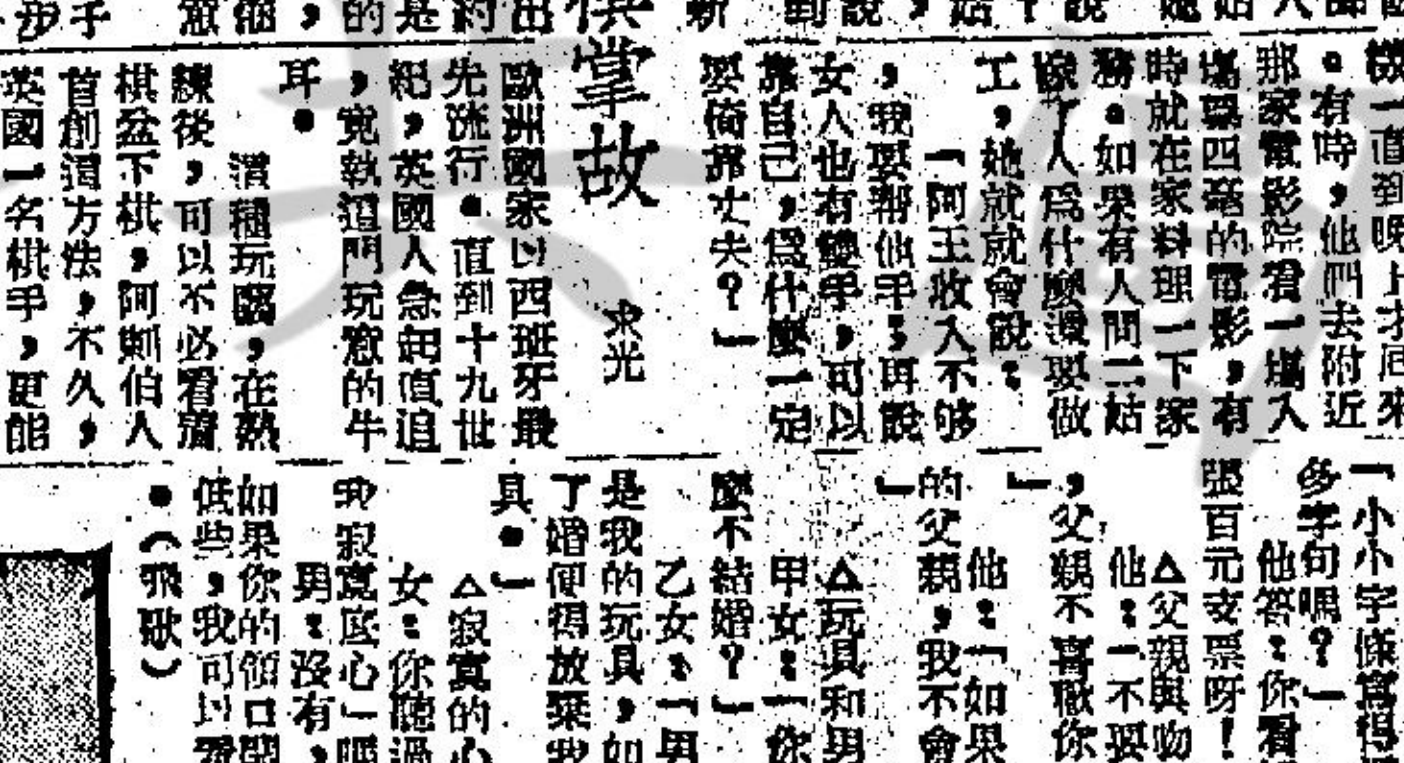 機一直到晚上才回來
。有時，他們去附近
那家電影院看一塲入
塲票四毫的電影，有
時就在家料理一下家
務。如果有人問二姑
嫁了人爲什麼還要做
工，她就就會說：
「阿王收入不够
，我要幫他手；再說
女人也有雙手，可以
靠自己，爲什麼一定
要倚靠丈夫？」
棋掌故
求光
歐洲國家以西班牙最
先流行。直到十九世
紀，英國人急起直追
，竟執這門玩意的牛
耳。
這種玩藝，在熟
練後，可以不必看着
棋盆下棋，阿剌伯人
首創這方法，不久，
英國一名棋手，更館
「小小字條寫得
多字句嗎？」
他答：你看
張百元支票呀！
△父親與
他：「不要
，父親不喜歡你
」
他：「如果
的父親，我不會
」
△玩具和男
甲女：「你
麼不結婚？」
乙女：「男
是我的玩具，如
了婚便得放棄
具。」
△寂寞的心
女：你聽過
寂寞底心」嗎
男：沒有，
如果你的領口開
低些，我可以
。（飛歌）